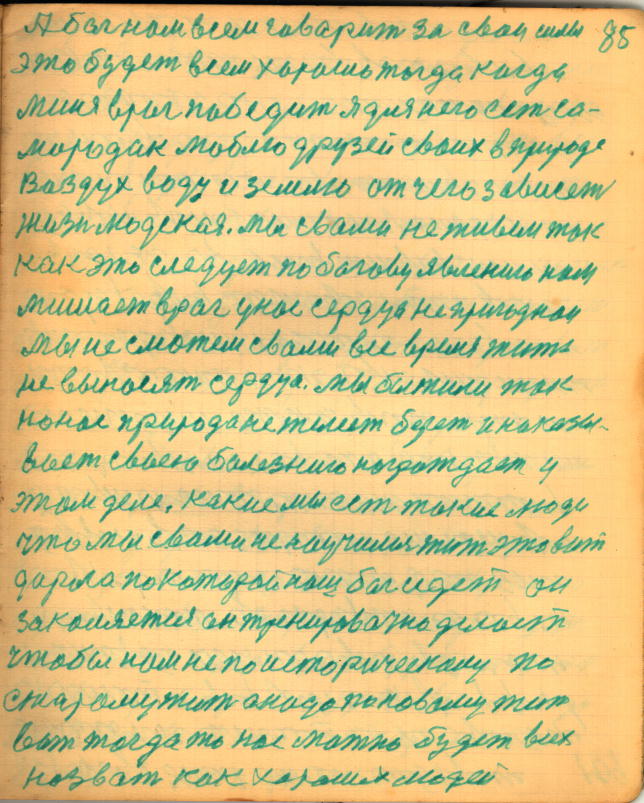 А бог нам всем говарит за свои силы 85
это будет всем харашо тогда когда
миня враг победит я для него сет са-
мародак люблю друзей своих в природе
Ваздух воду и землю от чего зависет
жизн людская. мы свами не живем так
как это следует по богову явлению нам
мишает враг у нас сердца не пригоднаи
мы не сможем свами все время жить
не выносят сердца. мы бы жили так
но нас природа не жилеет берет и наказы-
вает своею болезнию награждает и
этом деле. какие мы сет такие люди
что мы свами не научилис жит это вит
дарога по каторой наш бог идет он
закаляется он тренировачно делает
чтобы нам не по историческому по
старому жит а надо по новаму жит
вот тогда то нас можно будет всех
назват как хароших людей